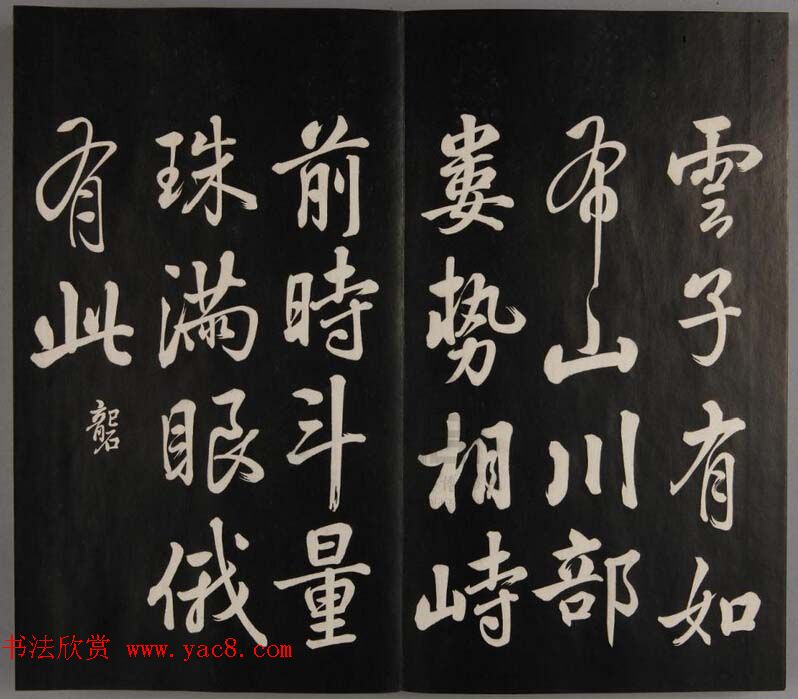 雲子有如
布山川部
婁勢相峙
前時斗量
珠滿眼俄
有此
礱
书法欣赏 www.yac8.com